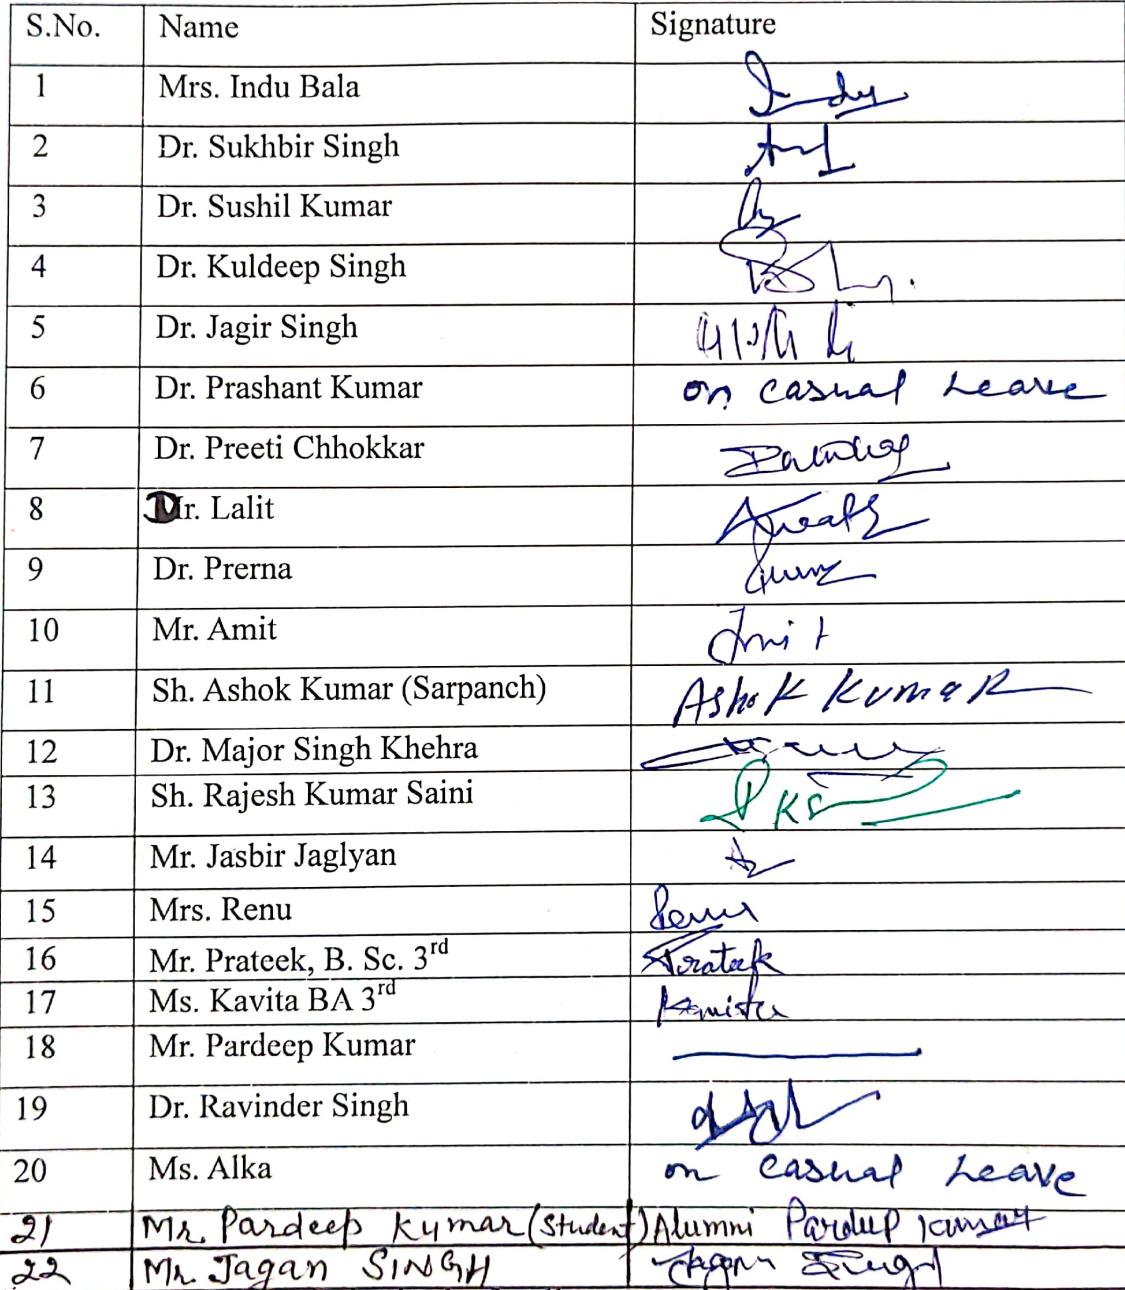 S.No. Name Signature
1 Mrs. Indu Bala Indu
2 Dr. Sukhbir Singh
3 Dr. Sushil Kumar
4 Dr. Kuldeep Singh
5 Dr. Jagir Singh
6 Dr. Prashant Kumar on casual Leave
7 Dr. Preeti Chhokkar
8 Dr. Lalit
9 Dr. Prerna
10 Mr. Amit Amit
11 Sh. Ashok Kumar (Sarpanch) Ashok Kumar
12 Dr. Major Singh Khehra
13 Sh. Rajesh Kumar Saini
14 Mr. Jasbir Jaglyan
15 Mrs. Renu Renu
16 Mr. Prateek, B. Sc. 3rd Prateek
17 Ms. Kavita BA 3rd
18 Mr. Pardeep Kumar
19 Dr. Ravinder Singh
20 Ms. Alka on casual Leave
21 Mr. Pardeep Kumar (Student) Alumni Pardeep Kumar
22 Mr. Jagan SINGH Jagan Singh